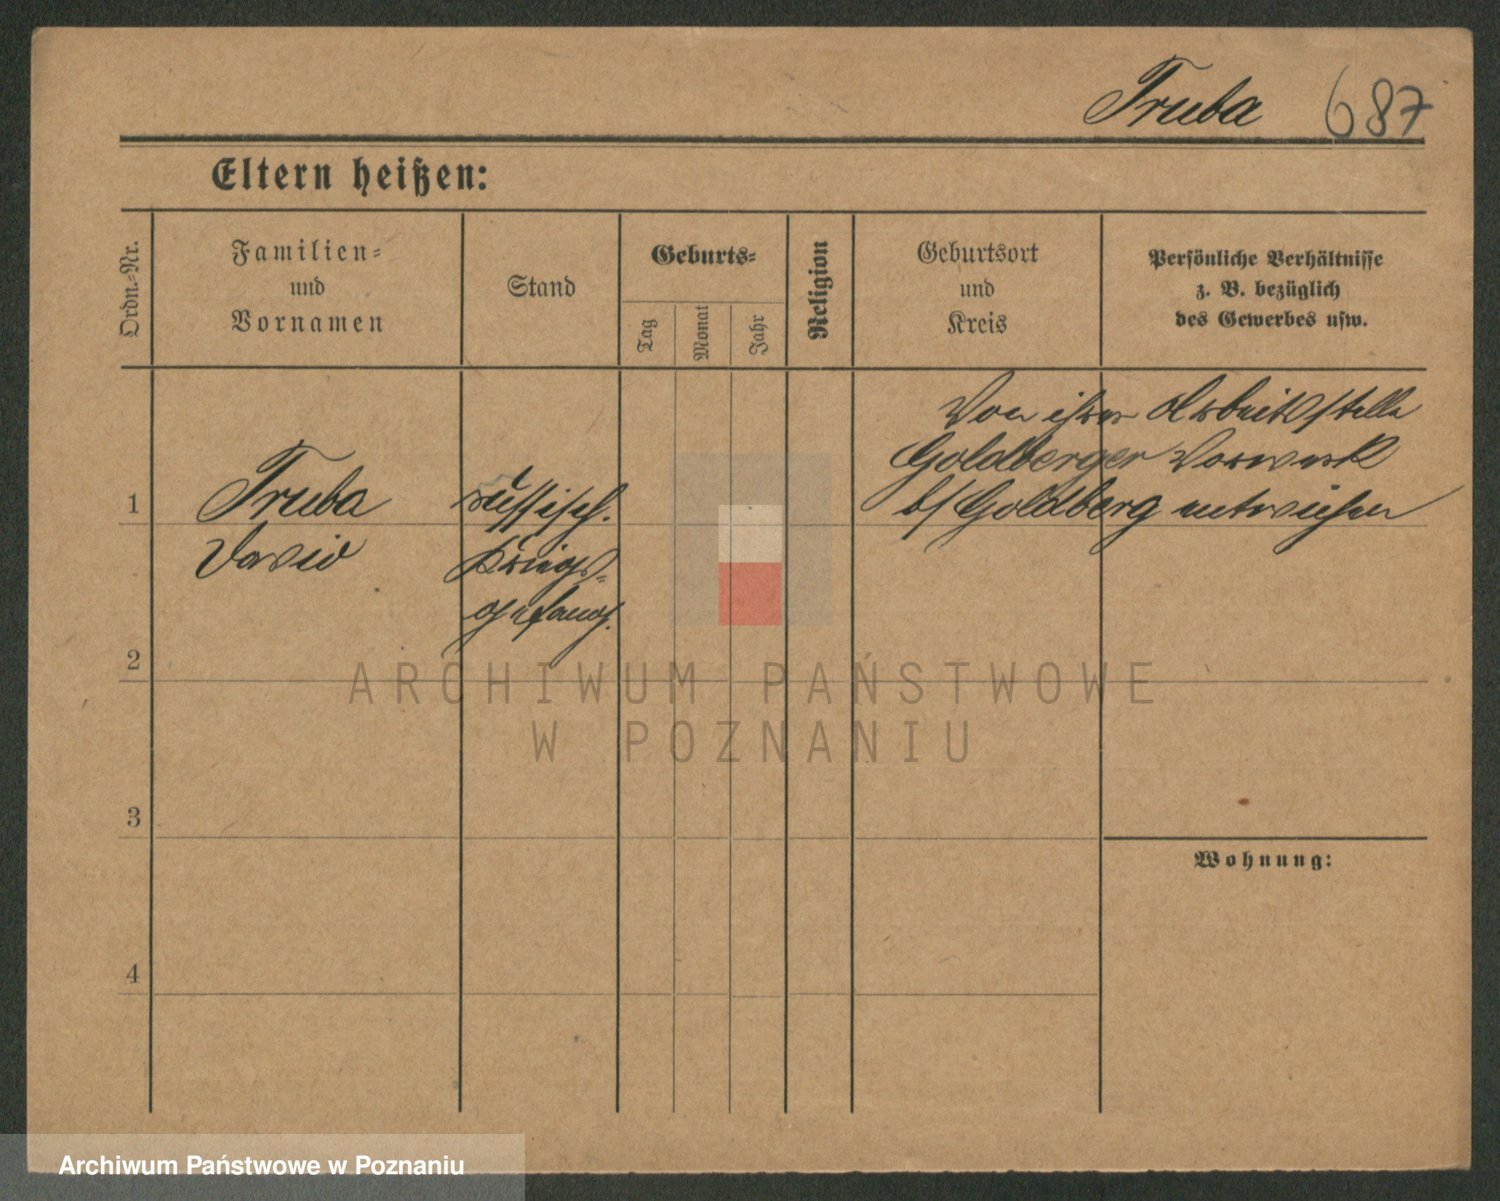 Truba 687
Eltern heißen:
Ordn.-Nr.
Familien-
und
Vornamen
Stand
Geburts-
Tag
Monat
Jahr
Religion
Geburtsort
und
Kreis
Persönliche Verhältnisse
z. B. bezüglich
des Gewerbes usw.
Von ihrer Arbeitsstelle
Goldberger Vorwerk
b/Goldberg entwichen
1
Truba
David
russisch.
Kriegs-
gefang.
2
3
4
Wohnung:
ARCHIWUM PAŃSTWOWE
W POZNANIU
Archiwum Państwowe w Poznaniu